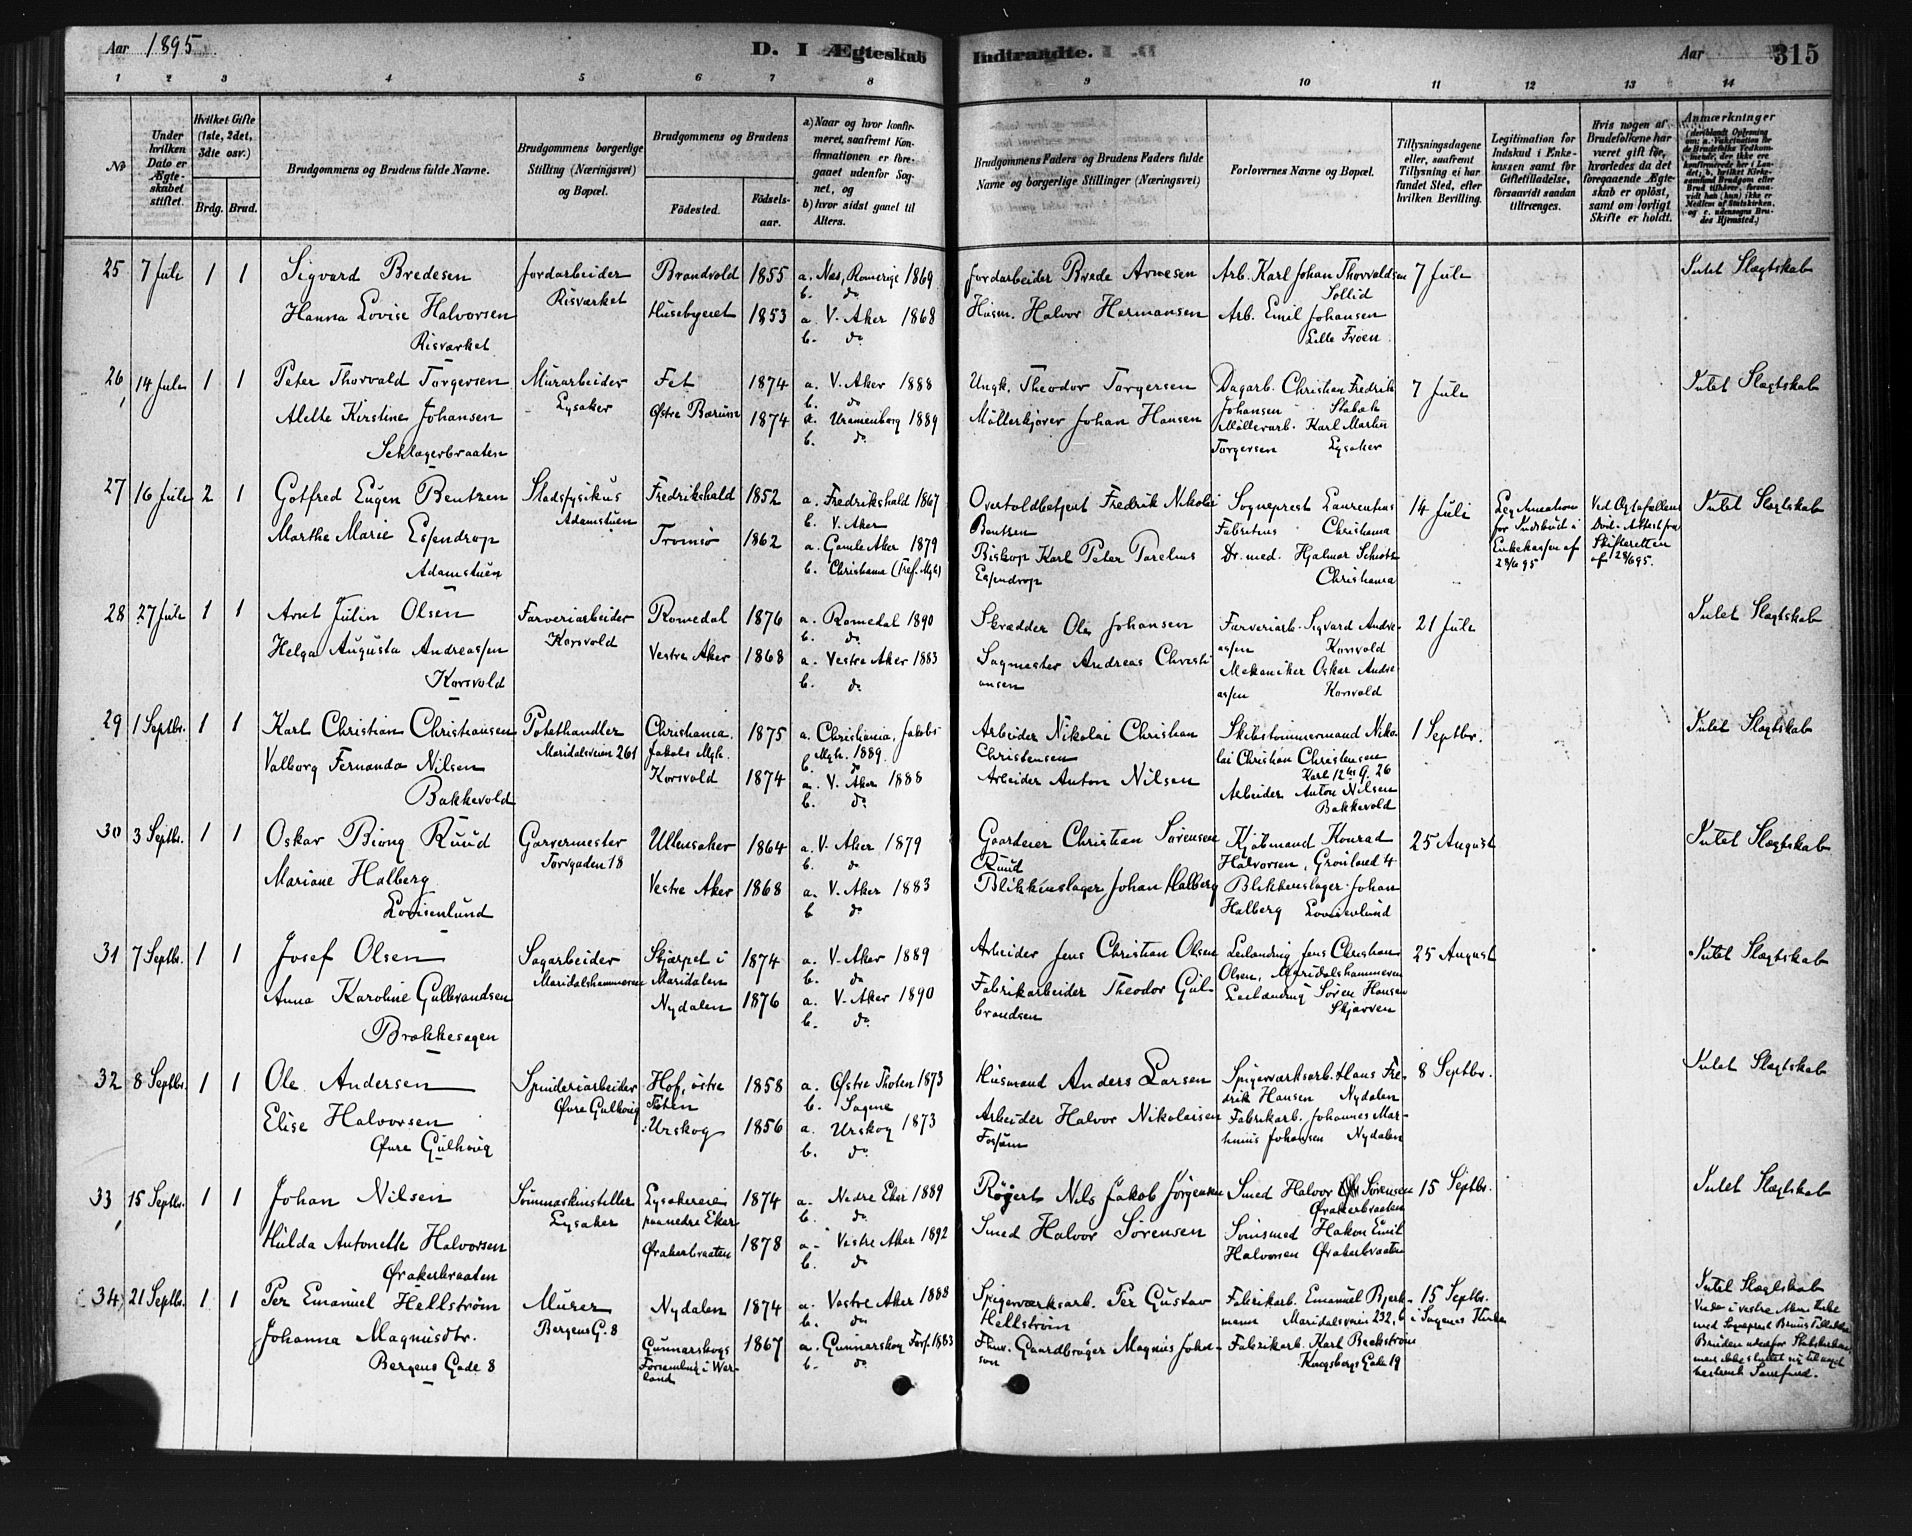 Aar 1895 D. I Ægteskab Indtraadte. Aar 315
1 2 3 4 5 6 7 8 9 10 11 12 13 14
No
Under hvilken Dato er Ægteskabet stiftet.
Hvilket Gifte (1ste, 2det, 3dte osv.)
Brdg. Brud.
Brudgommens og Brudens fulde Navne.
Brudgommens borgerlige Stilling (Næringsvei) og Bopæl.
Brudgommens og Brudens
Födested. Födselsaar.
a) Naar og hvor konfirmeret, saafremt Konfirmationen er foregaaet udenfor Sognet, og
b) hvor sidst gaaet til Alters.
Brudgommens Faders og Brudens Faders fulde Navne og borgerlige Stillinger (Næringsvei)
Forlovernes Navne og Bopæl.
Tillysningsdagene eller, saafremt Tillysning ei har fundet Sted, efter hvilken Bevilling.
Legitimation for Indskud i Enkekassen samt for Giftetilladelse, forsaavidt saadan tiltrænges.
Hvis nogen af Brudefolkene har været gift før, hvorledes da det foregaaende Ægteskab er oplöst, samt om lovligt Skifte er holdt.
Anmærkninger
25 7 Juli 1 1 Sigvard Bredesen Jordarbeider Brandvold 1855 a. Næs, Romerige 1869 Jordarbeider Brede Arnesen Arb. Karl Johan Thorvaldsen 7 Juli Intet Slægtskab
Risværket b. do Sollid
Hanna Lovise Halvorsen Husebygeret 1853 a. V. Aker 1868 Husm. Halvor Hermansen Arb. Emil Johansen
Risværket b. do Lille Frøen
26 14 Juli 1 1 Peter Thorvald Torgersen Murarbeider Fet 1874 a. V. Aker 1888 Ungk. Theodor Torgersen Dagarb. Christian Fredrik 7 Juli Intet Slægtskab
Lysaker b. do Johansen Stabæk
Alette Kirstine Johansen Østre Bærum 1874 a. Uranienborg 1889 Møllerkjører Johan Hansen Møllerarb. Karl Martin
Schlagerbraaten b. do Torgersen Lysaker
27 16 Juli 2 1 Gotfred Eugen Bentzen Stadsfysikus Fredrikshald 1852 a. Fredrikshald 1867 Overtoldbetjent Fredrik Nikolai Sogneprest Laurentius 14 Juli Legitimation Ved Ægtefællens Intet Slægtskab
Adamstuen b. V. Aker Bentzen Fabritius Christiania for Indskud i Död. Attest fra
Marthe Marie Essendrop Tromsø 1862 a. Gamle Aker 1879 Biskop Karl Peter Parelius Dr. med. Hjalmar Schiøtz Enkekassen af Skifteretten
Adamstuen b. Christiania Essendrop Christiania 28/6 95 af 28/6 95.
28 27 Juli 1 1 Arnt Julin Olsen Farveriarbeider Romedal 1876 a. Romedal 1890 Skrædder Ole Johansen Farveriarb. Sigvard Andre- 21 Juli Intet Slægtskab
Korsvold b. do assen Korsvold
Helga Augusta Andreassen Vestre Aker 1868 a. Vestre Aker 1883 Sagmester Andreas Christi Mekaniker Oskar Andre
Korsvold b. do ansen assen Korsvold
29 1 Septbr. 1 1 Karl Christian Christiansen Potethandler Christiania. 1875 a. Christiania, Jakobs Arbeider Nikolai Christian Skibstømmermand Niko 1 Septbr. Intet Slægtskab
Maridalsveien 261 Jakobs Mgh. Mgh. 1889. Christensen lai Christian Christensen
Valborg Fernanda Nilsen Korsvold 1874 a. V. Aker 1888 Arbeider Anton Nilsen Karl 12tes G. 26
Bakkevold b. do Arbeider Anton Nilsen
Bakkevold
30 3 Septbr. 1 1 Oskar Biong Ruud Garvermester Ullensaker 1864 a. V. Aker 1879 Gaardeier Christian Sørensen Kjøbmand Konrad 25 August Intet Slægtskab
Torvgaden 18 b. do Ruud Halvorsen, Grønland 4
Mariane Halberg Vestre Aker 1868 a. V. Aker 1883 Blikkenslager Johan Halberg Blikkenslager Johan
Lovisenlund b do Halberg Lovisenlund
31 7 Septbr. 1 1 Josef Olsen Sagarbeider Skjærpet i 1874 a. V. Aker 1889 Arbeider Jens Christian Olsen Leilænding Jens Christian 25 August Intet Slægtskab
Maridalshammeren Maridalen b. do Olsen, Maridalshammeren
Anna Karoline Gulbrandsen Nydalen 1876 a. V. Aker 1890 Fabrikarbeider Theodor Gul- Leilænding Søren Hansen
Brækkesagen b. do brandsen Skjærven
32 8 Septbr. 1 1 Ole Andersen Spinderiarbeider Hof, østre 1858 a. Østre Thoten 1873 Husmand Anders Larsen Spigerværksarb. Hans Fre- 8 Septbr. Intet Slægtskab
Øvre Gulhoug Toten b. Sagene drik Hansen Nydalen
Elise Halvorsen Urskog 1856 a. Urskog 1873 Arbeider Halvor Nikolaisen Fabrikarb. Johannes Mar-
Øvre Gulhoug b. do Fossum hinius Johansen Nydalen
33 15 Septbr. 1 1 Johan Nilsen Sømmaskinstiller Lysakereie 1874 a. Nedre Eker 1889 Røgert Nils Jakob Jörgensen Smed Halvor Sørensen 15 Septbr. Intet Slægtskab
Lysaker paa nedre Eker b. do Ørakerbraaten
Hilda Antonette Halvorsen Ørakerbraaten 1878 a. Vestre Aker 1892 Smed Halvor Sørensen Sømsmed Hakon Emil
Ørakerbraaten b. do Halvorsen Ørakerbraaten
34 21 Septbr. 1 1 Per Emanuel Hellström Murer Nydalen 1874 a. Vestre Aker 1888 Spigerværksarb. Per Gustav Fabrikarb. Emanuel Bjerk- 15 Septbr. Intet Slægtskab
Bergens G. 8 b. do Hellström mann Maridalsveien 232, b i Sagenes Kirke Viede i vestre Akers Kirke
Johanna Magnusdtr. Gunnarskogs 1867 a. Gunnarskog Fors. 1883 Fhnv. Gaardbruger Magnus John- Fabrikarb. Karl Backström
Bergens Gade 8 Forsamling i Wermland b. do son Kongsbergs Gade 19